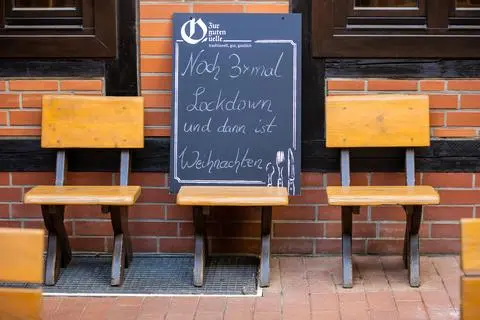 Zur
guten
Quelle
traditionell, gut, gastlich
Noch 3xmal
Lockdown
und dann ist
Weihnachten.